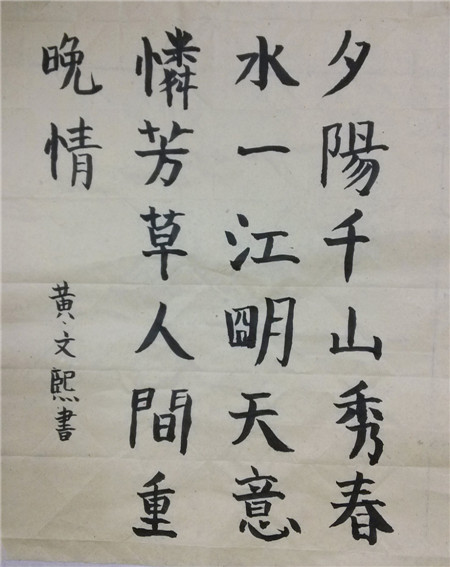 夕陽千山秀春
水一江朙天意
憐芳草人間重
晚情
黄文熙書